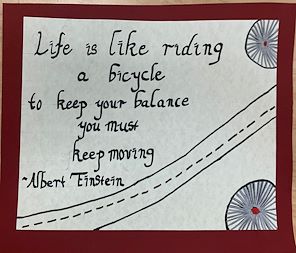 Life is like riding
a bicycle
to keep your balance
you must
keep moving
~Albert Einstein